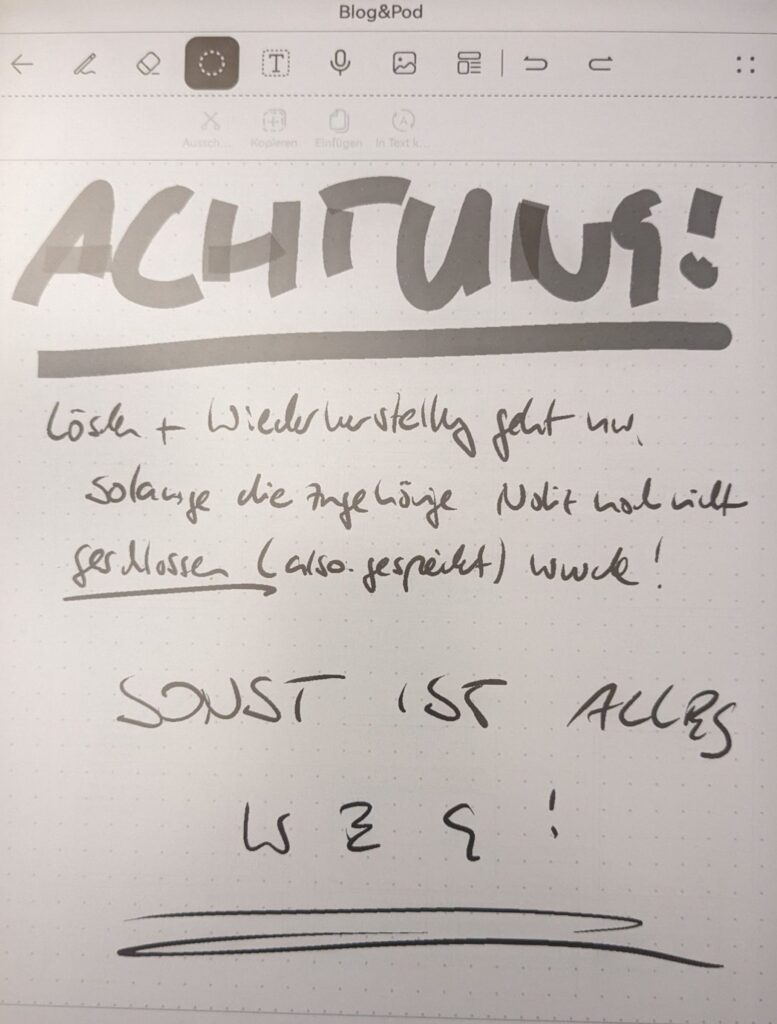 Blog&Pod
Aussch...
Kopieren
Einfügen
In Text k...
ACHTUNG!
Löschen + Wiederherstellung geht nur,
solange die zugehörige Notiz noch nicht
geschlossen (also gespeichert) wurde!
SONST IST ALLES
WEG!